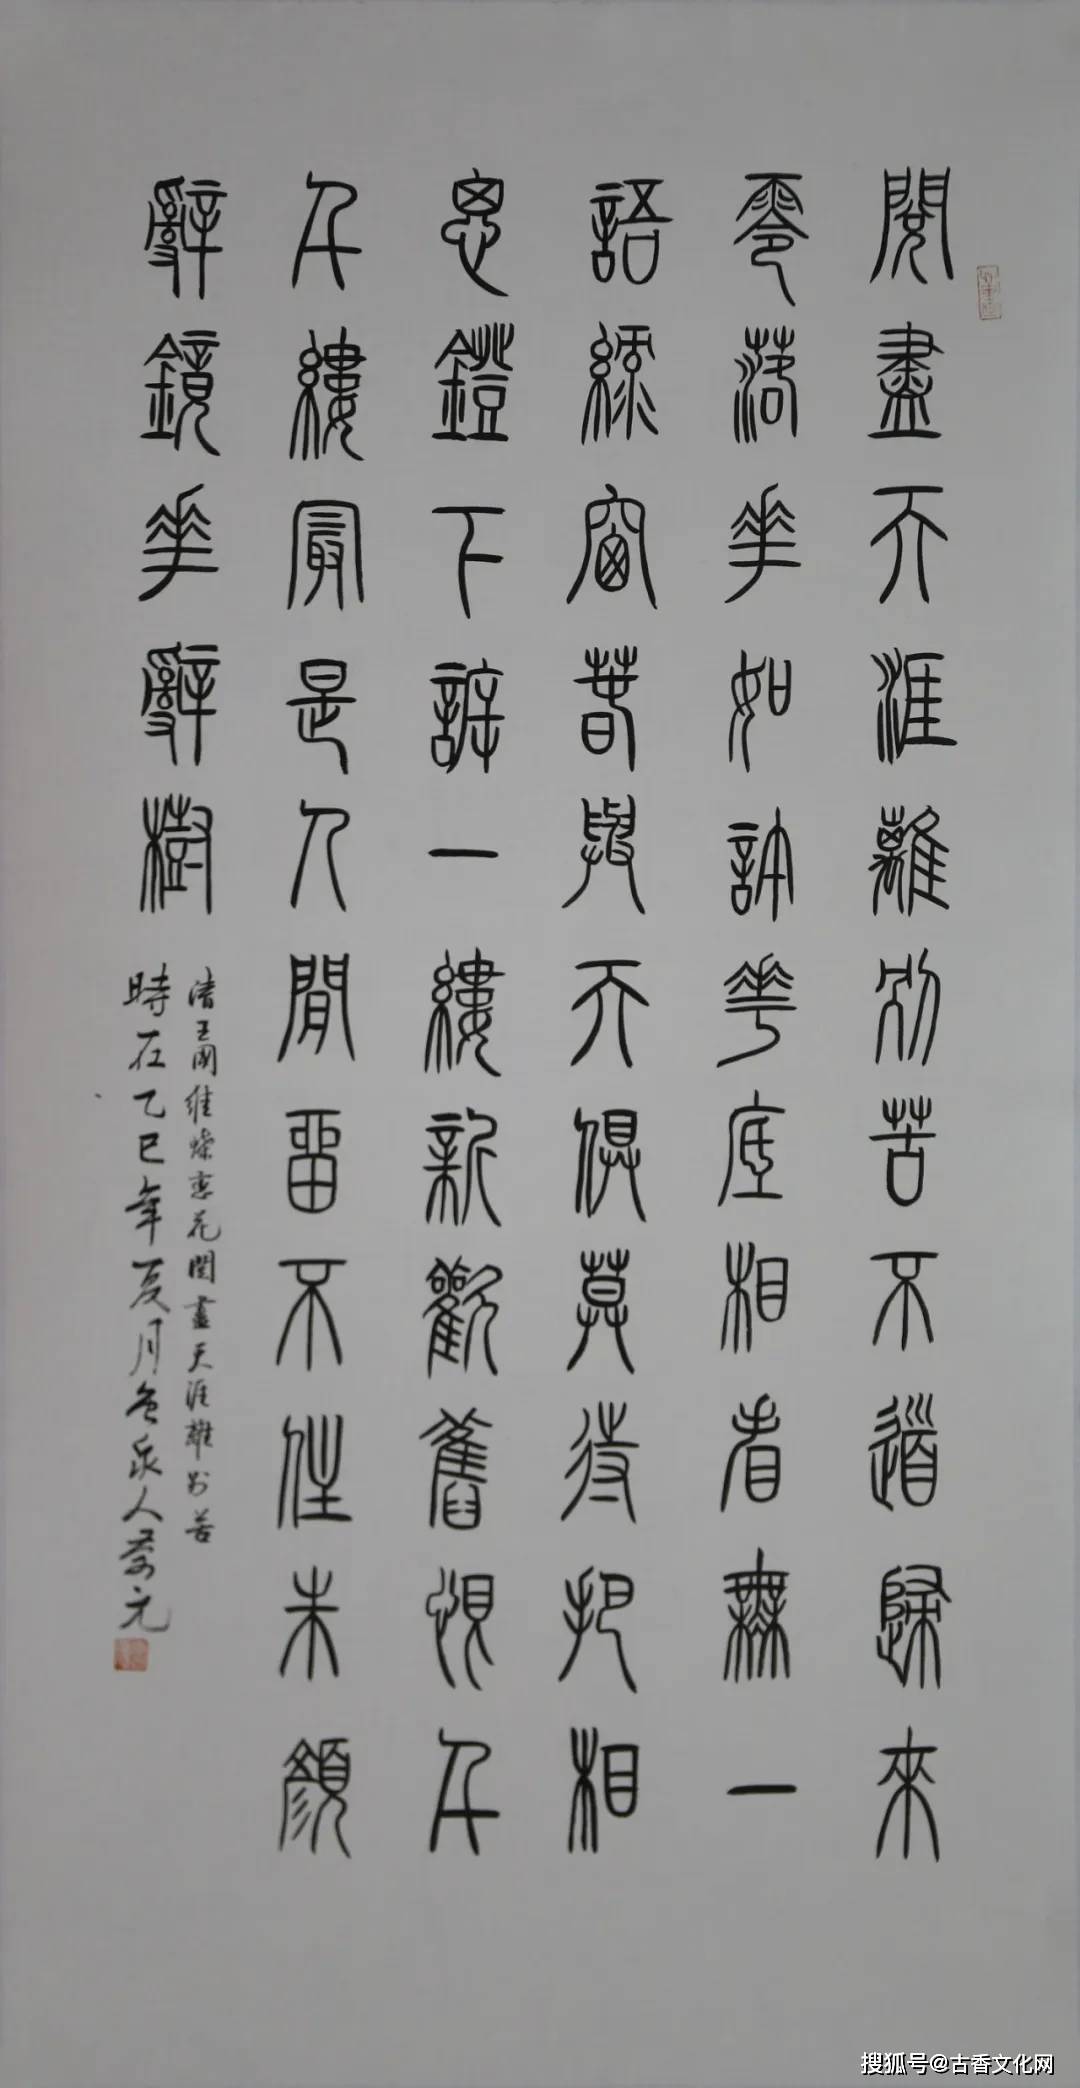 閱盡天涯離別苦不道歸來
零落花如許花底相看無一
語綠窗春與天俱莫待把相
思鐙下訴一縷新歡舊恨千
千縷最是人間留不住朱顏
辭鏡花辭樹
清王國維蝶戀花閱盡天涯離別苦
時在乙巳年夏月泉人元
搜狐号@古香文化网